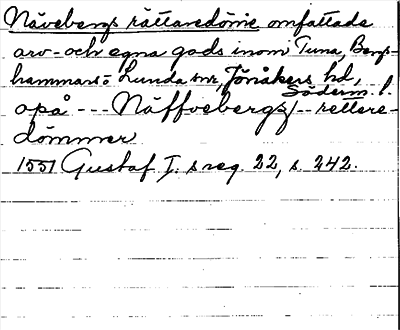 Nävebergs rättaredöme omfattade
arv- och egna gods inom Tuna, Bergs-
hammars- o Lunda snr, Jönåkers hd,
Söderm. l.
opå --- Näffvebergz/-- rettere-
dömmer
1551 Gustaf I:s reg. 22, s. 242.